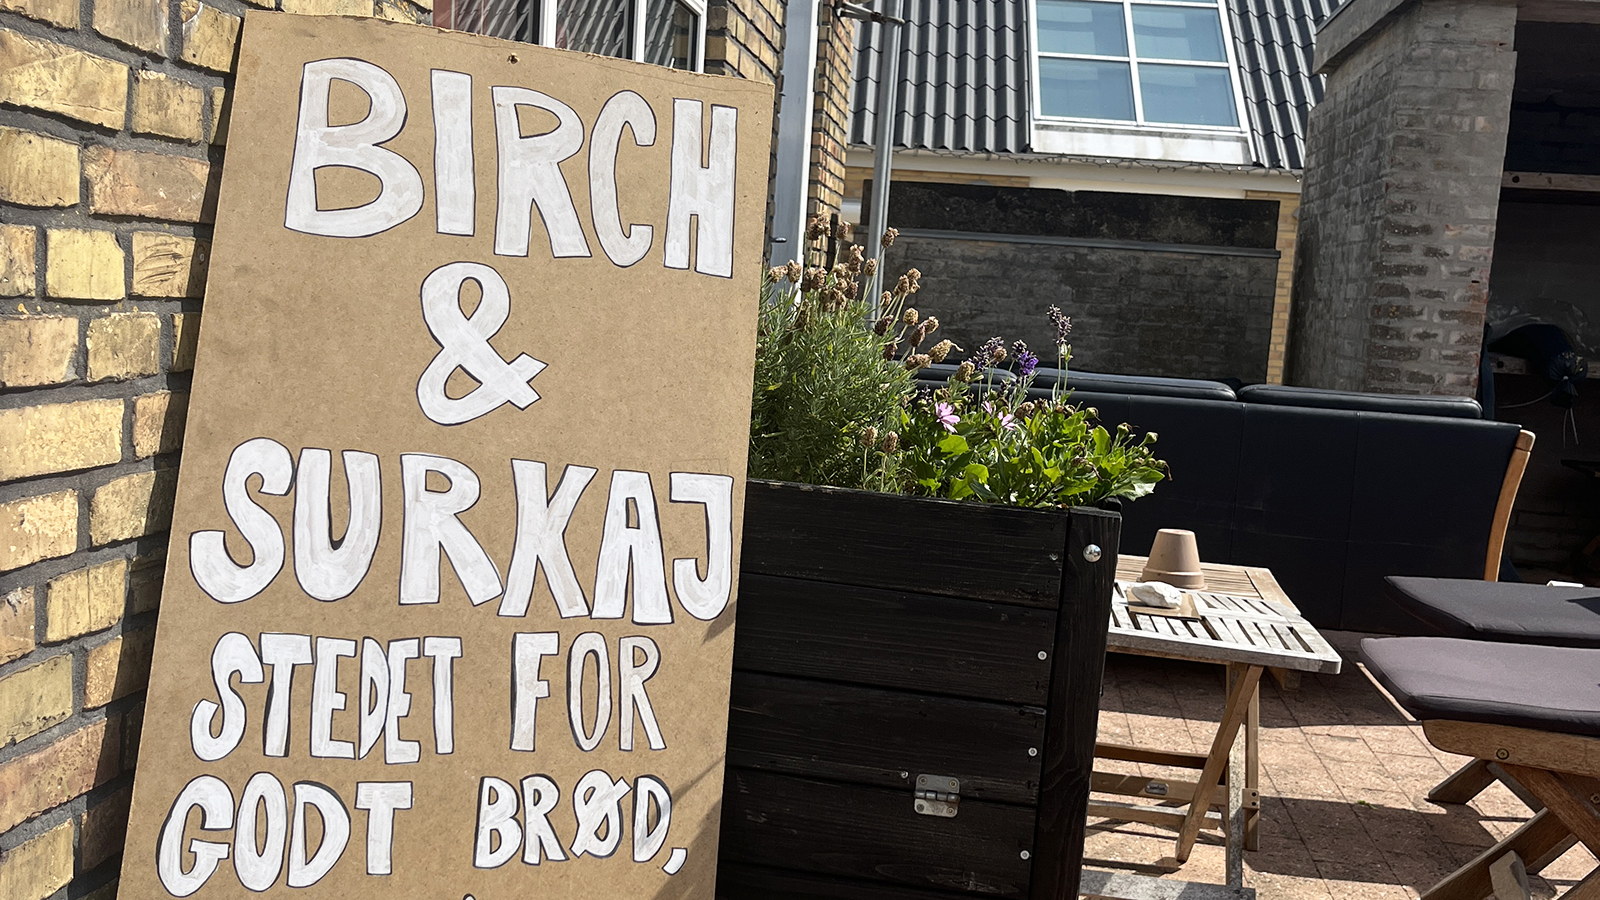 BIRCH
&
SURKAJ
STEDET FOR
GODT BRØD,